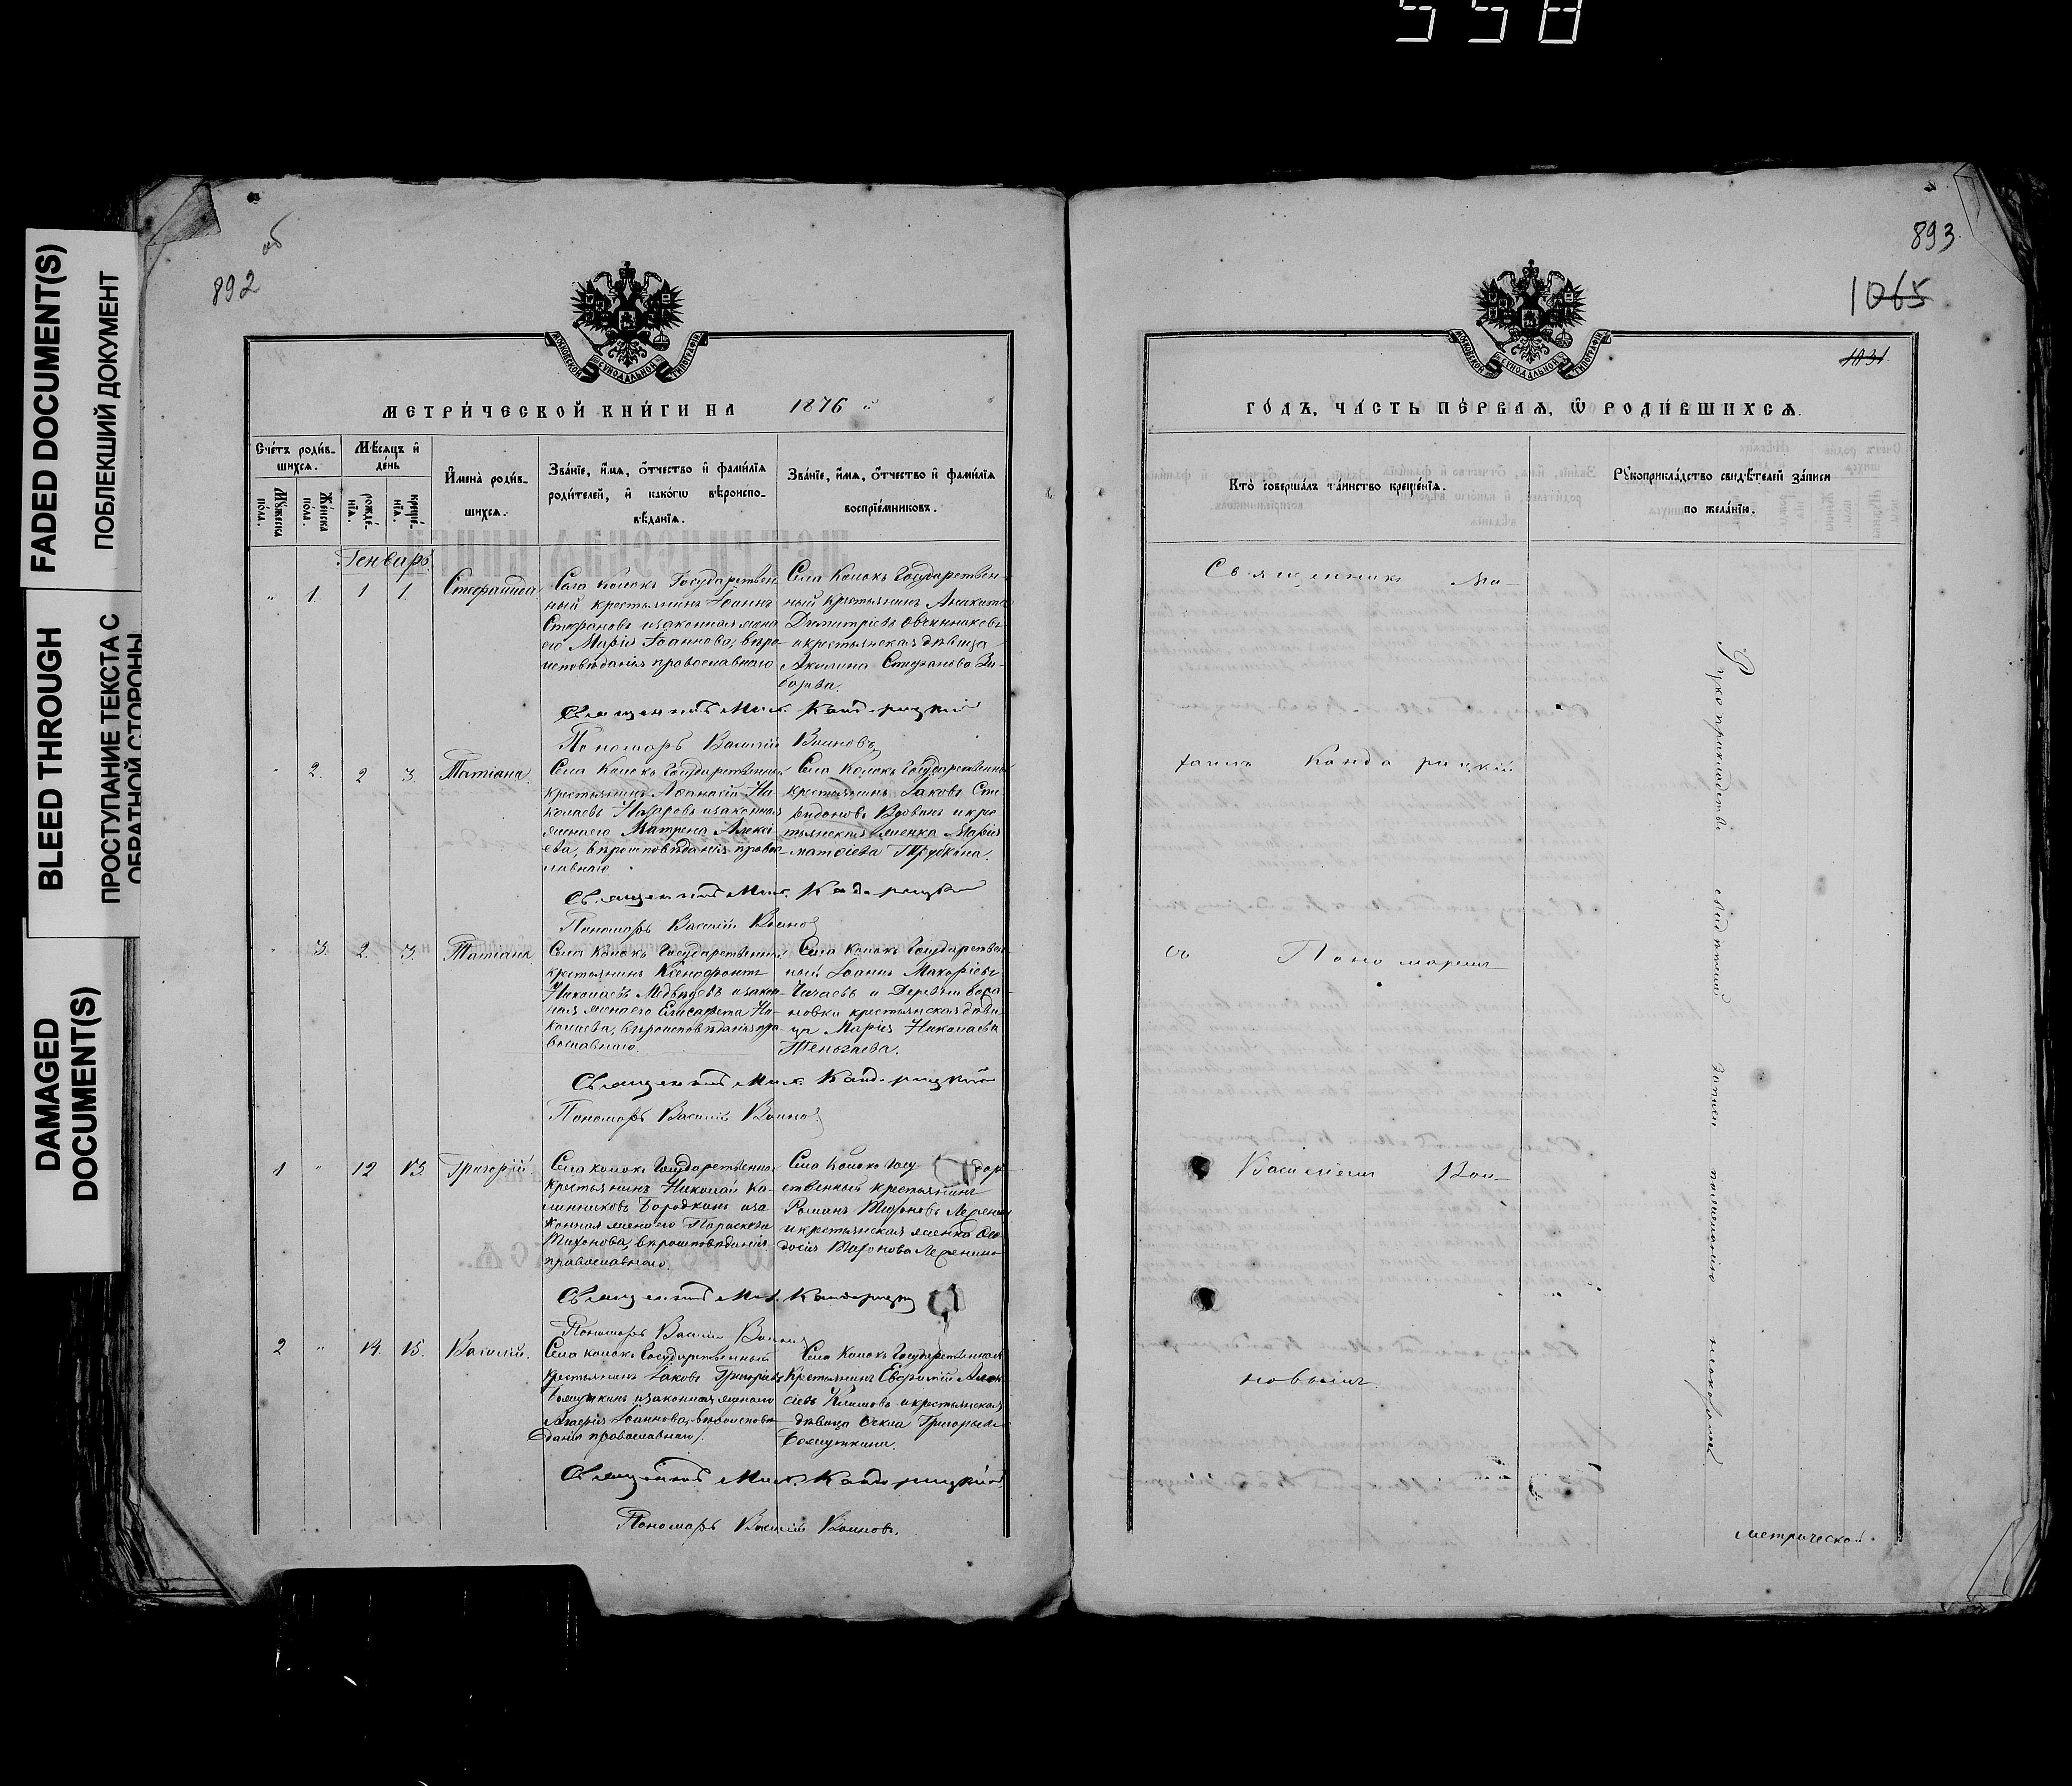 558
FADED DOCUMENT(S)
ПОБЛЕКШИЙ ДОКУМЕНТ
BLEED THROUGH
ПРОСТУПАНИЕ ТЕКСТА С
ОБРАТНОЙ СТОРОНЫ
DAMAGED
DOCUMENT(S)
об
892
МОСКОВСКОЙ СѴНОДАЛЬНОЙ ТИПОГРАФІИ
МЕТРИ́ЧЕСКОЙ КНИ́ГИ НА 1876 й
Сче́тъ роди́в-
шихся.
Мѣ́сяцъ и҆
де́нь
Мꙋ́жеска
по́ла.
Же́нска
по́ла.
рожде́-
нїѧ.
креще́-
нїѧ.
И҆мена̀ роди́в-
шихсѧ.
Зва́нїе, и҆́мѧ, ѻ҆́тчество и҆ фами́лїѧ
роди́телей, и҆ како́гѡ вѣроиспо-
вѣ́данїѧ.
Зва́нїе, и҆́мѧ, ѻ҆́тчество и҆ фами́лїѧ
воспрїе́мниковъ.
Генварь
" 1. 1 1. Стефанида
Села Колокъ Государствен-
ный крестьянинъ Іоаннъ
Стефановъ и законная жена
его Марія Іоаннова, впро-
исповѣданія православнаго
Села Колокъ Государствен-
ный крестьянинъ Аникита
Димитріевъ Овчинниковъ
и крестьянская дѣвица
Акилина Стефанова
Священникъ Мих. Кандарицкій
Пономарь Василій Воиновъ
" 2. 2 3. Татіана
Села Колокъ Государственный
крестьянинъ Аѳанасій Ни-
колаевъ Назаровъ и законная
жена его Матрена Алексі-
ева, впроисповѣданія право-
славнаго
Села Колокъ Государственный
крестьянинъ Іаковъ Спи-
ридоновъ Вдовинъ и кре-
стьянская женка Марія
Матѳіева Трубкина.
Священникъ Мих. Кандарицкій
Пономарь Василій Воиновъ
" 3. 2. 3. Татіана
Села Колокъ Государственный
крестьянинъ Ксенофонтъ
Николаевъ Медвѣдевъ и закон-
ная жена его Елисавета Ни-
колаева, впроисповѣданія пра-
вославнаго.
Села Колокъ Государствен-
ный Іоаннъ Макаріевъ
Чигаевъ и Деревни
крестьянская дѣви-
ца Марія Николаева
Священникъ Мих. Кандарицкій
Пономарь Василій Воиновъ
1 " 12 13. Григорій
Села Колокъ Государственной
крестьянинъ Николай Ка-
линниковъ Бородкинъ и за-
конная жена его Параскева
Тихонова, впроисповѣданія
православнаго.
Села Колокъ Госу- дар-
ственный крестьянинъ
Романъ Тихоновъ
и крестьянская женка Ѳео-
досія Тихонова
Священникъ Мих. Кандарицкій
Пономарь Василій Воиновъ
2 " 14. 15. Василій.
Села Колокъ Государственный
крестьянинъ Іаковъ Григоріевъ
и законная жена его
Марія Іоаннова, впроисповѣ-
данія православнаго.
Села Колокъ Государственный
Крестьянинъ Евфимій Алек-
сіевъ и крестьянская
дѣвица Ѳекла Григорьева
Священникъ Мих. Кандарицкій
Пономарь Василій Воиновъ.
893
1065
1031
МОСКОВСКОЙ СѴНОДАЛЬНОЙ ТИПОГРАФІИ
ГО́ДЪ, ЧА́СТЬ ПЕ́РВАѦ, Ѡ҆ РОДИ́ВШИХСѦ.
Кто̀ соверша́лъ та́инство креще́нїѧ.
Рꙋкоприкла́дство свидѣ́телей за́писи
по жела́нїю.
Священникъ Ми-
хаилъ Кандарицкій
съ Пономаремъ
Василіемъ Вои-
новымъ.
Рукоприкладство свидѣтелей записи по желанію
метрической